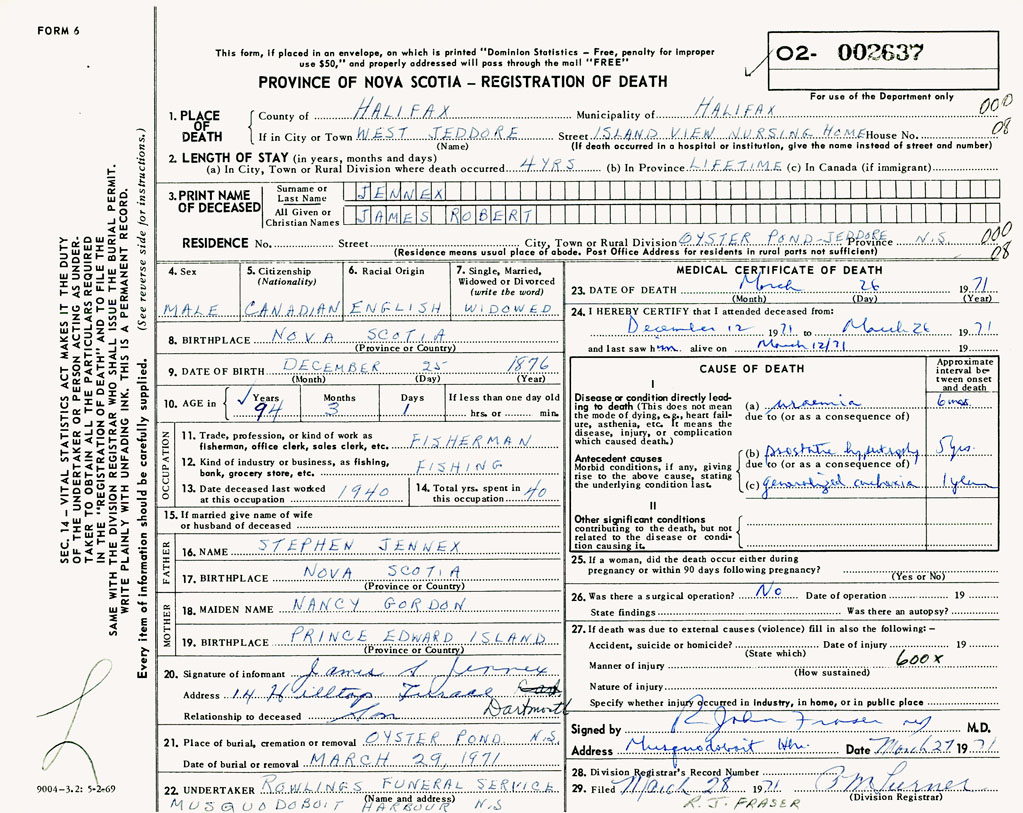 FORM 6
This form, if placed in an envelope, on which is printed "Dominion Statistics – Free, penalty for improper
use $50," and properly addressed will pass through the mail "FREE"
PROVINCE OF NOVA SCOTIA – REGISTRATION OF DEATH
02- 002637
For use of the Department only
1. PLACE OF DEATH
County of HALIFAX Municipality of HALIFAX 000
If in City or Town WEST JEDDORE Street ISLAND VIEW NURSING HOME House No. 08
(Name) (If death occurred in a hospital or institution, give the name instead of street and number)
2. LENGTH OF STAY (in years, months and days)
(a) In City, Town or Rural Division where death occurred 4 YRS (b) In Province LIFETIME (c) In Canada (if immigrant)
3. PRINT NAME OF DECEASED
Surname or Last Name JENNEX
All Given or Christian Names JAMES ROBERT
RESIDENCE No. Street City, Town or Rural Division OYSTER POND-JEDDORE Province N.S. 000
(Residence means usual place of abode. Post Office Address for residents in rural ports not sufficient) 08
4. Sex
MALE
5. Citizenship (Nationality)
CANADIAN
6. Racial Origin
ENGLISH
7. Single, Married, Widowed or Divorced (write the word)
WIDOWED
8. BIRTHPLACE NOVA SCOTIA
(Province or Country)
9. DATE OF BIRTH DECEMBER 25 1876
(Month) (Day) (Year)
10. AGE in Years Months Days If less than one day old
94 3 1 hrs. or min.
OCCUPATION
11. Trade, profession, or kind of work as
fisherman, office clerk, sales clerk, etc. FISHERMAN
12. Kind of industry or business, as fishing,
bank, grocery store, etc. FISHING
13. Date deceased last worked
at this occupation 1940
14. Total yrs. spent in
this occupation 40
15. If married give name of wife
or husband of deceased
FATHER
16. NAME STEPHEN JENNEX
17. BIRTHPLACE NOVA SCOTIA
(Province or Country)
MOTHER
18. MAIDEN NAME NANCY GORDON
19. BIRTHPLACE PRINCE EDWARD ISLAND
(Province or Country)
20. Signature of informant James S Jennex
Address 14 Hilltop Terrace
Dartmouth
Relationship to deceased Son
21. Place of burial, cremation or removal OYSTER POND N.S.
Date of burial or removal MARCH 29, 1971
22. UNDERTAKER ROWLINGS FUNERAL SERVICE
(Name and address)
MUSQUODOBOIT HARBOUR N.S
MEDICAL CERTIFICATE OF DEATH
23. DATE OF DEATH March 26 1971
(Month) (Day) (Year)
24. I HEREBY CERTIFY that I attended deceased from:
December 12 1971 to March 26 1971
and last saw him alive on March 12/71 19
CAUSE OF DEATH
Approximate interval between onset and death
I
Disease or condition directly leading to death (This does not
mean the mode of dying, e.g., heart failure, asthenia, etc. It means the
disease, injury, or complication
which caused death.)
(a) uraemia 6 mos.
due to (or as a consequence of)
Antecedent causes
Morbid conditions, if any, giving
rise to the above cause, stating
the underlying condition last.
(b) prostatic hypertrophy 5 yrs.
due to (or as a consequence of)
(c) generalized cachexia 1 year
II
Other significant conditions
contributing to the death, but not
related to the disease or condition causing it.
25. If a woman, did the death occur either during
pregnancy or within 90 days following pregnancy?
(Yes or No)
26. Was there a surgical operation? No Date of operation 19
State findings Was there an autopsy?
27. If death was due to external causes (violence) fill in also the following: –
Accident, suicide or homicide? Date of injury 19
(State which)
Manner of injury 600 X
(How sustained)
Nature of injury
Specify whether injury occurred in industry, in home, or in public place
Signed by R John Fraser M.D.
Address Musquodoboit Hbr. Date March 27 1971
28. Division Registrar's Record Number
29. Filed March 28 1971
(Division Registrar)
R. J. FRASER
SEC. 14 – VITAL STATISTICS ACT MAKES IT THE DUTY
OF THE UNDERTAKER OR PERSON ACTING AS UNDER-
TAKER TO OBTAIN ALL THE PARTICULARS REQUIRED
IN THE "REGISTRATION OF DEATH" AND TO FILE THE
SAME WITH THE DIVISION REGISTRAR WHO SHALL ISSUE THE BURIAL PERMIT.
WRITE PLAINLY WITH UNFADING INK. THIS IS A PERMANENT RECORD.
Every item of information should be carefully supplied. (See reverse side for instructions.)
9004-3.2: 5-2-69